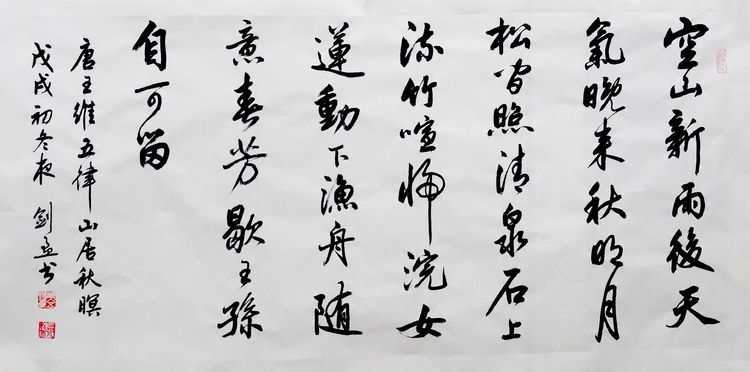 空山新雨後天
氣晚来秋明月
松间照清泉石上
流竹喧归浣女
蓮動下漁舟随
意春芳歇王孫
自可留
唐王維五律山居秋暝
戊戌初冬夜剑孟书